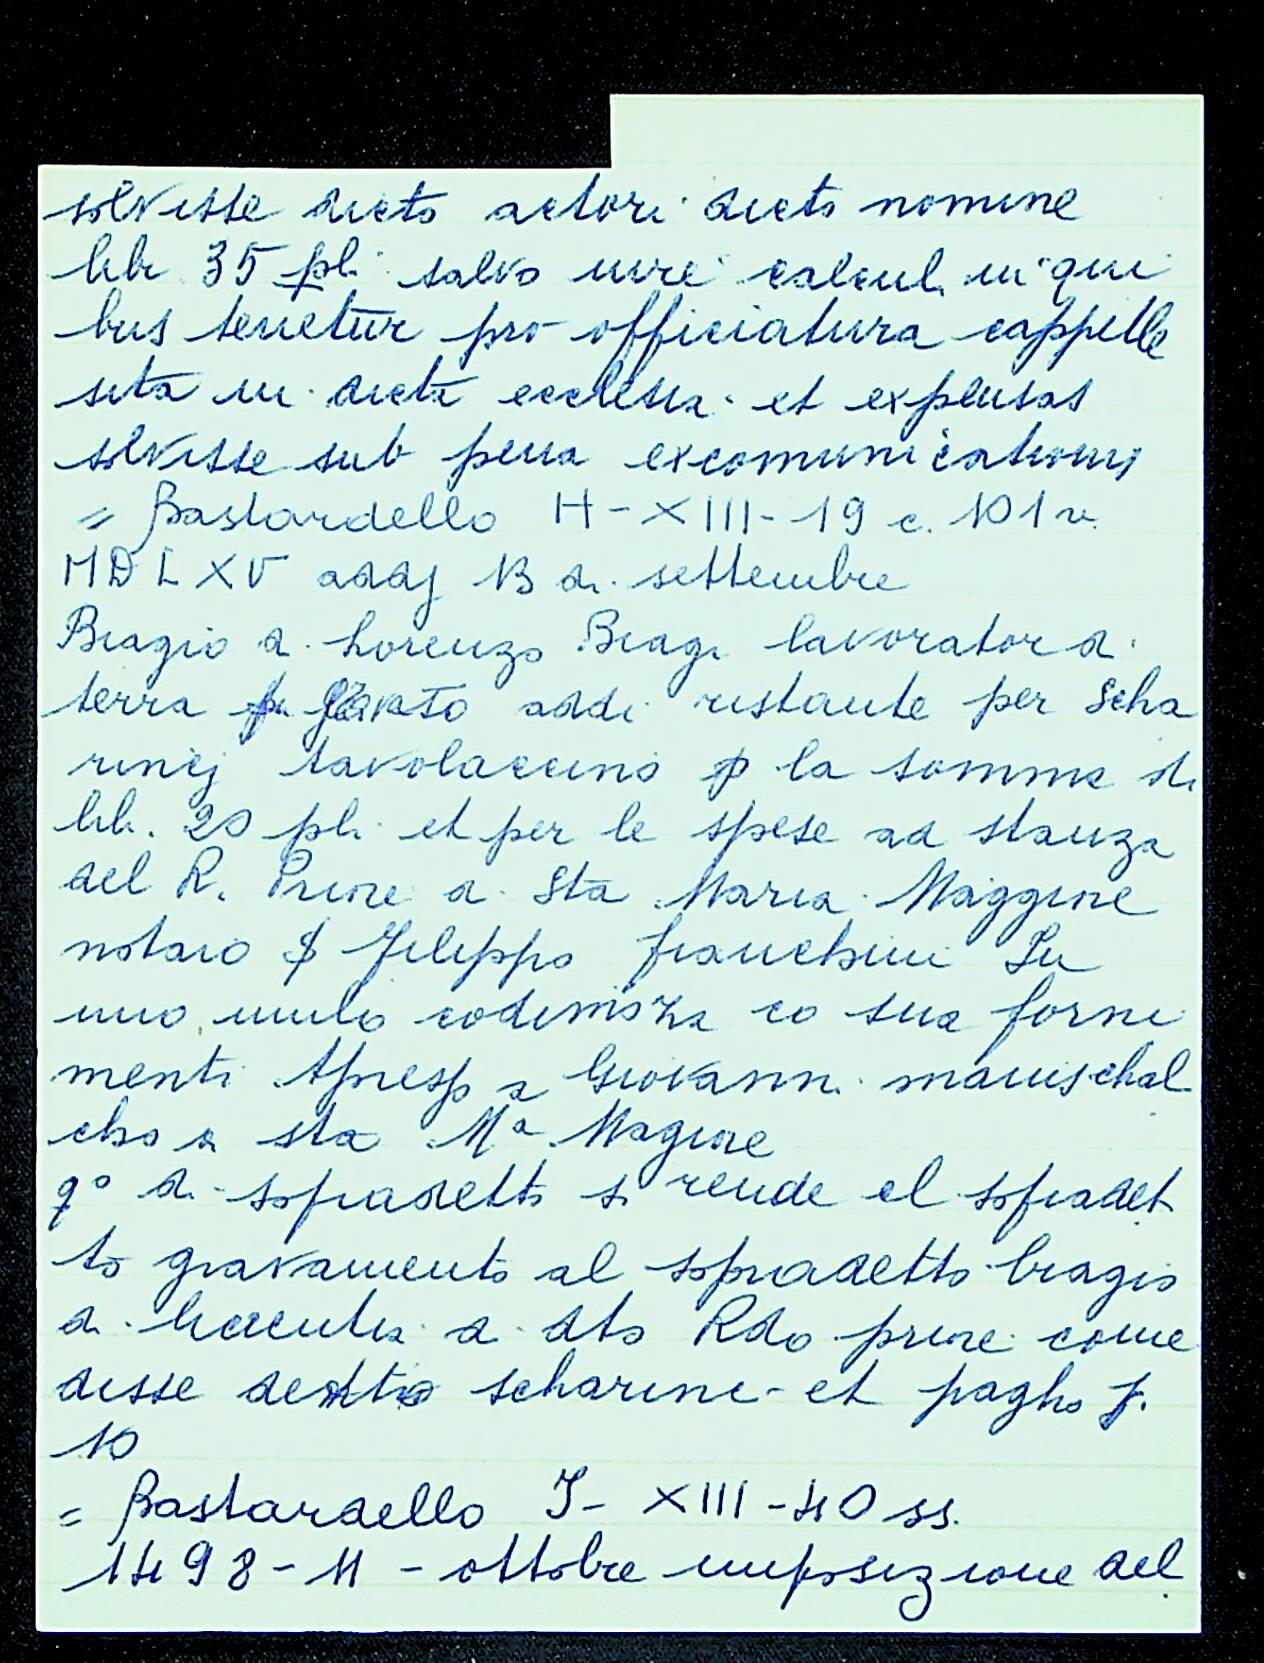 solvisse dicto actori dicto nomine
lib. 35 pli. salvo iure calcul. in qui
bus tenetur pro officiatura cappelle
sita in dicta ecclesia et expensas
solvisse sub pena excomunicationis
= Bastardello H - XIII - 19 c. 101 v.
MDLXV addj 13 di settembre
Biagio di Lorenzo Biagi lavorator di
terra addi ristante per Scha
rinej tavolaccino p la somma di
lib. 20 pli. et per le spese ad stanza
del R. Priore di Sta Maria Maggiore
notaro Filippo franchini In
uno mulo co sua forni
menti Apresso a Giovanni manischal
cho a sta Mª Magiore
qº di sopradetto si rende el sopradet
to gravamento al sopradetto biagio
di licentia di dto Rdo priore come
disse detto scharine et pagho f.
10
= Bastardello I - XIII - 40 ss.
1498 - 11 - ottobre imposizione del